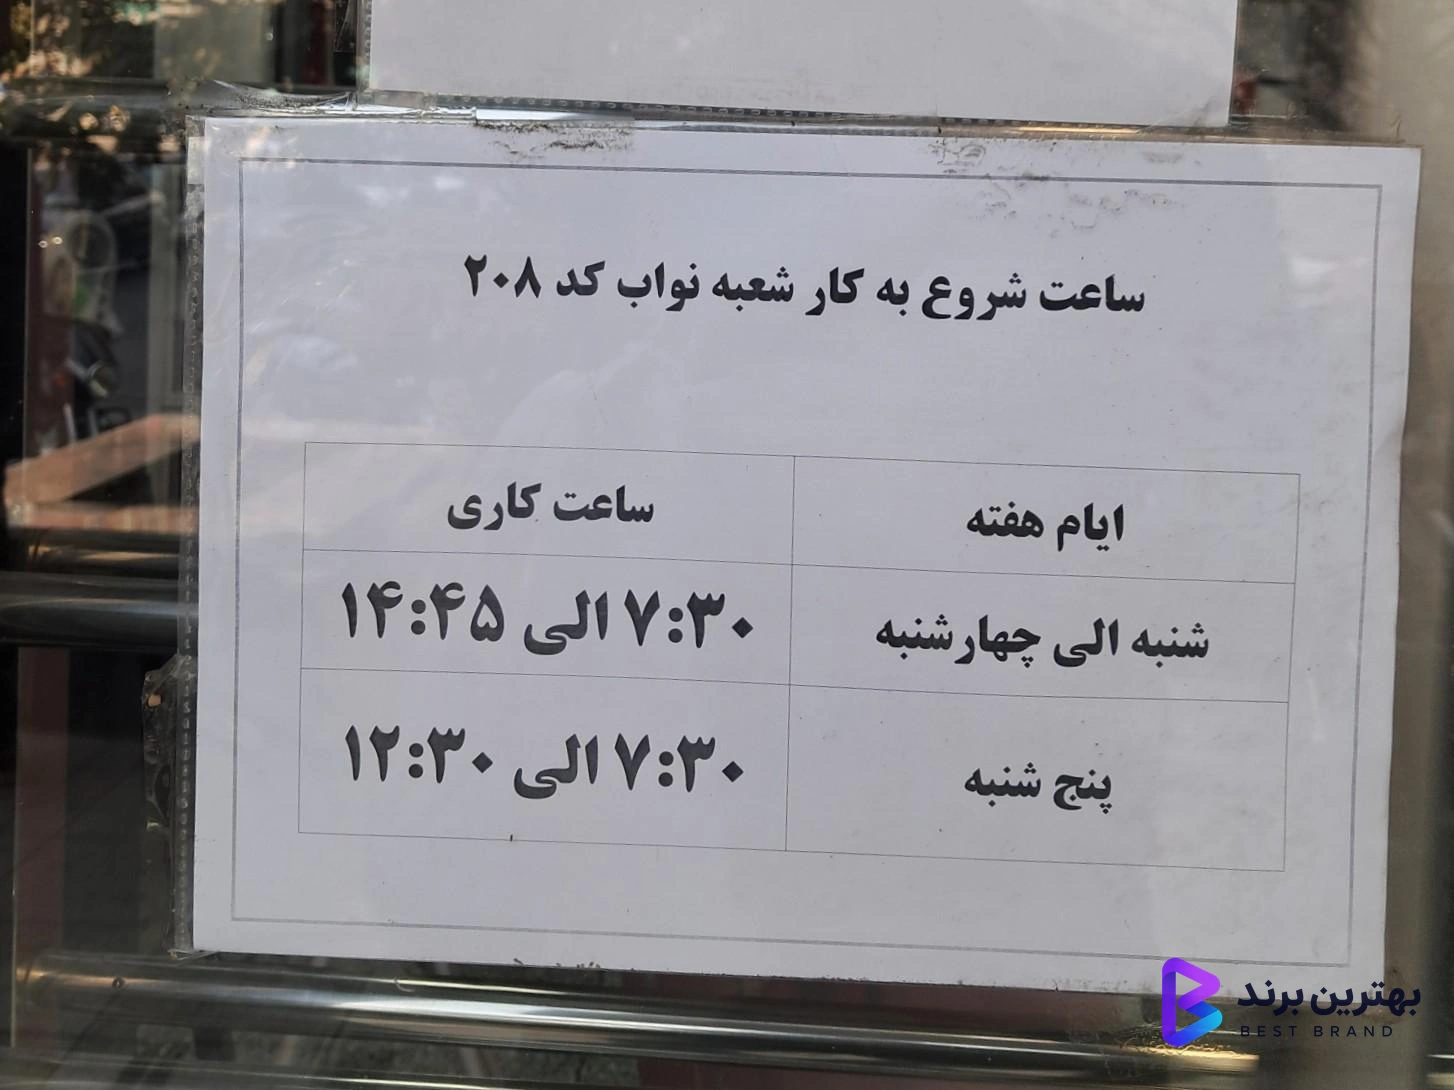 ساعت شروع به کار شعبه نواب کد ۲۰۸
ایام هفته ساعت کاری
شنبه الی چهارشنبه ۷:۳۰ الی ۱۴:۴۵
پنج شنبه ۷:۳۰ الی ۱۲:۳۰
بهترین برند
BEST BRAND